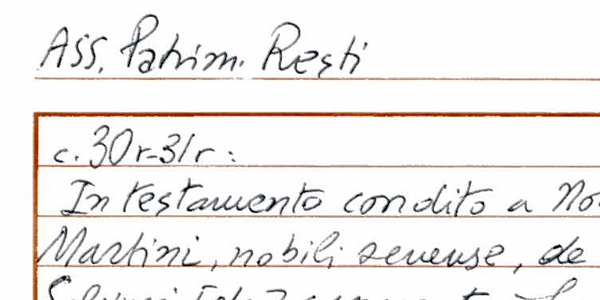 Ass. Patrim. Resti
c. 30r-31r:
In testamento condito a
Martini, nobili senense, de